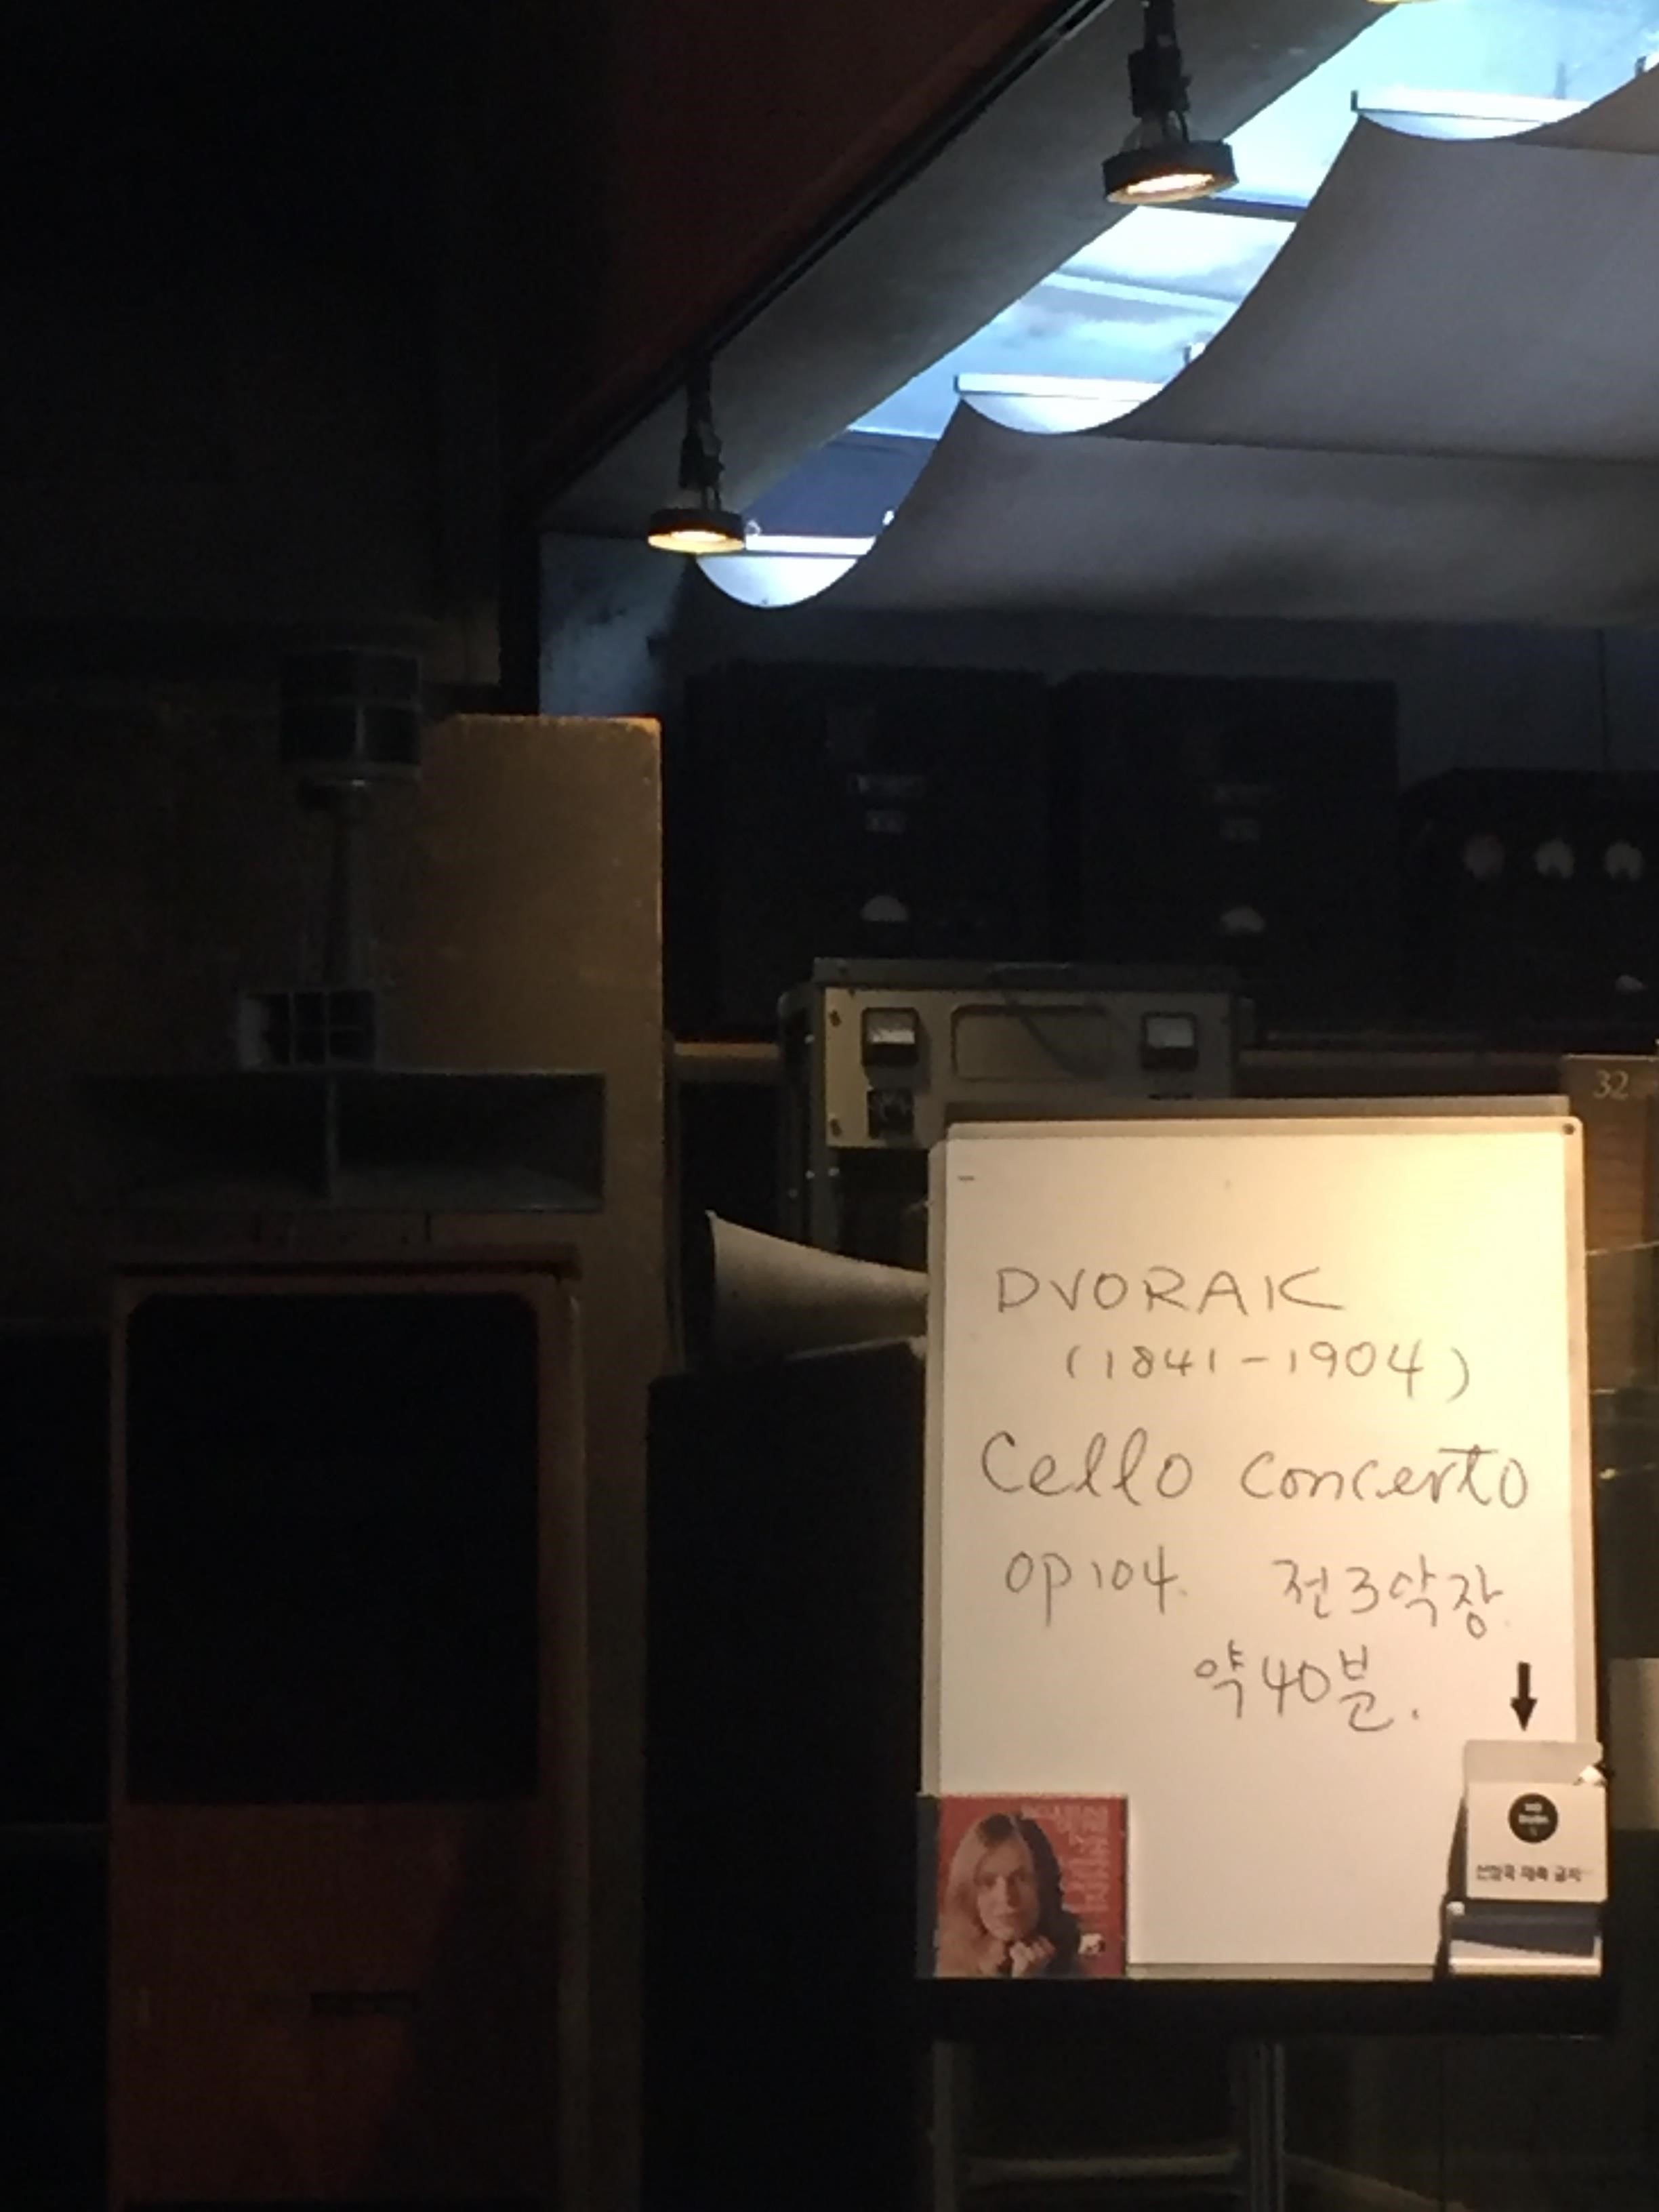 32
DVORAK
(1841-1904)
Cello concerto
op 104. 전 3악장.
약 40분.